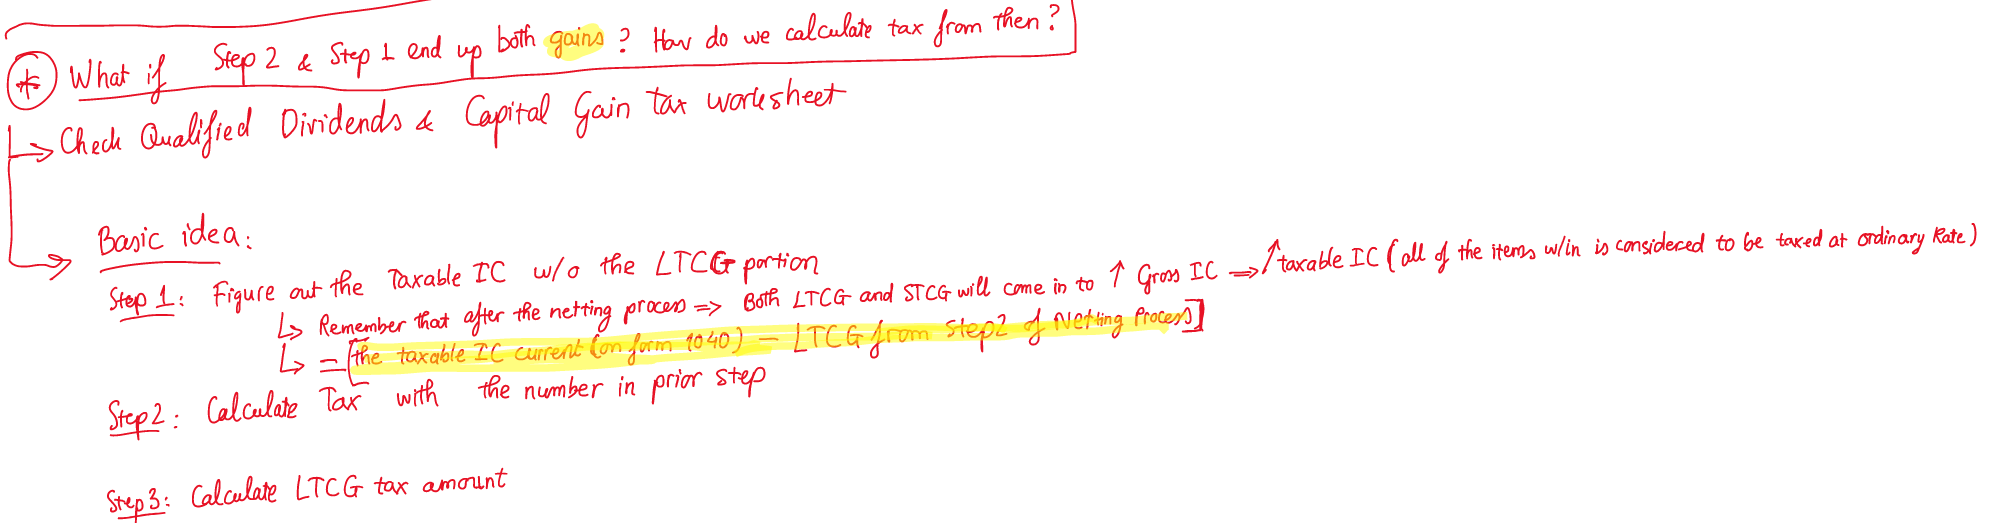 * What if Step 2 & Step 1 end up both gains? How do we calculate tax from then?
↳ Check Qualified Dividends & Capital Gain tax worksheet
→ Basic idea:
Step 1: Figure out the Taxable IC w/o the LTCG portion
↳ Remember that after the netting process => Both LTCG and STCG will come in to ↑ Gross IC => ↑ taxable IC (all of the items w/in is considered to be taxed at ordinary Rate)
↳ = [the taxable IC current (on form 1040) – LTCG from step2 of Netting Process]
Step2: Calculate Tax with the number in prior step
Step3: Calculate LTCG tax amount